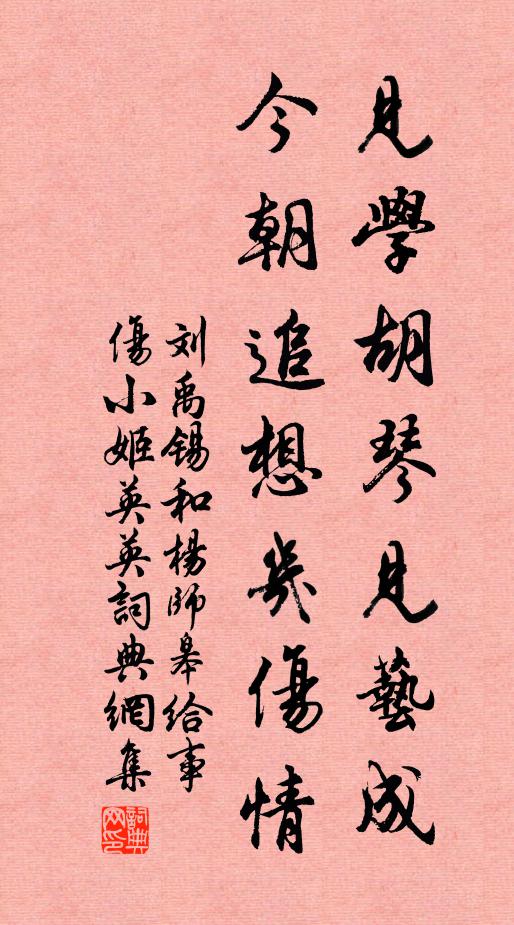 見學胡琴見藝成
今朝追想幾傷情
刘禹錫和楊師皋給事
傷小姬英英詞典網集
詞典
网印